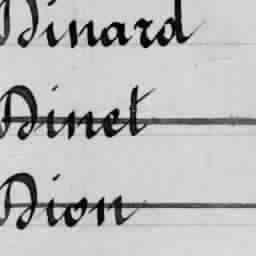 Dinard
Dinet
Dion